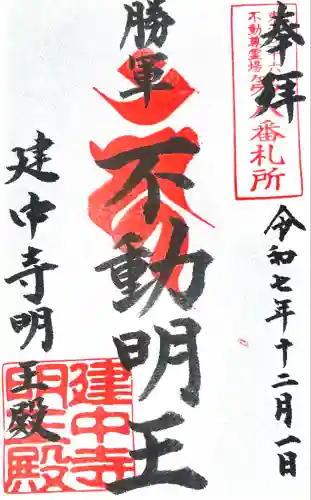 奉拝
不動尊霊場
八番札所
令和七年十二月一日
勝軍
不動明王
建中寺明王殿
建中寺
明王殿